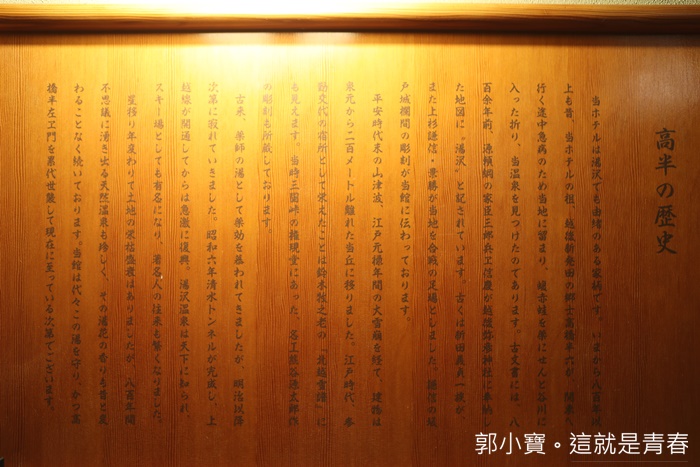 高半の歴史
当ホテルは湯沢でも由緒のある家柄です。いまから八百年以
上も昔、当ホテルの祖、越後新発田の郷士高橋半六が、関東へ
行く途中急病のため当地に留まり、
入った折り、当温泉を見つけたのであります。古文書には、八
百余年前、源頼綱の家臣三郎兵工信慶が越後弥彦神社に奉納し
た地図に〝湯沢〟と記されています。古くは
また上杉謙信・景勝が当地を合戦の足場としました。謙信の城
戸城欄間の彫刻が当館に伝わっております。
平安時代末の山津波、江戸元禄年間の大雪崩を経て、建物は
泉元から二百メートル離れた当丘に移りました。江戸時代、参
勤交代の宿所として栄えたことは鈴木牧之老の「北越雪譜」に
も見えます。当時三国峠の権現堂にあった、名工熊谷源太郎作
の彫刻も所蔵しております。
古来、薬師の湯として薬効を慕われてきましたが、明治以降
次第に寂れていきました。昭和六年清水トンネルが完成し、上
越線が開通してからは急激に復興。湯沢温泉は天下に知られ、
スキー場としても有名になり、著名人の往来も繁くなりました。
星移り年度わりて土地の栄枯盛衰はありましたが、八百年間
不思議に湧き出る天然温泉も珍しく、その湯花の香りも昔と変
わることなく続いております。当館は代々この湯を守り、かつ高
橋半左エ門を累代世襲して現在に至っている次第でございます。
郭小寶。這就是青春